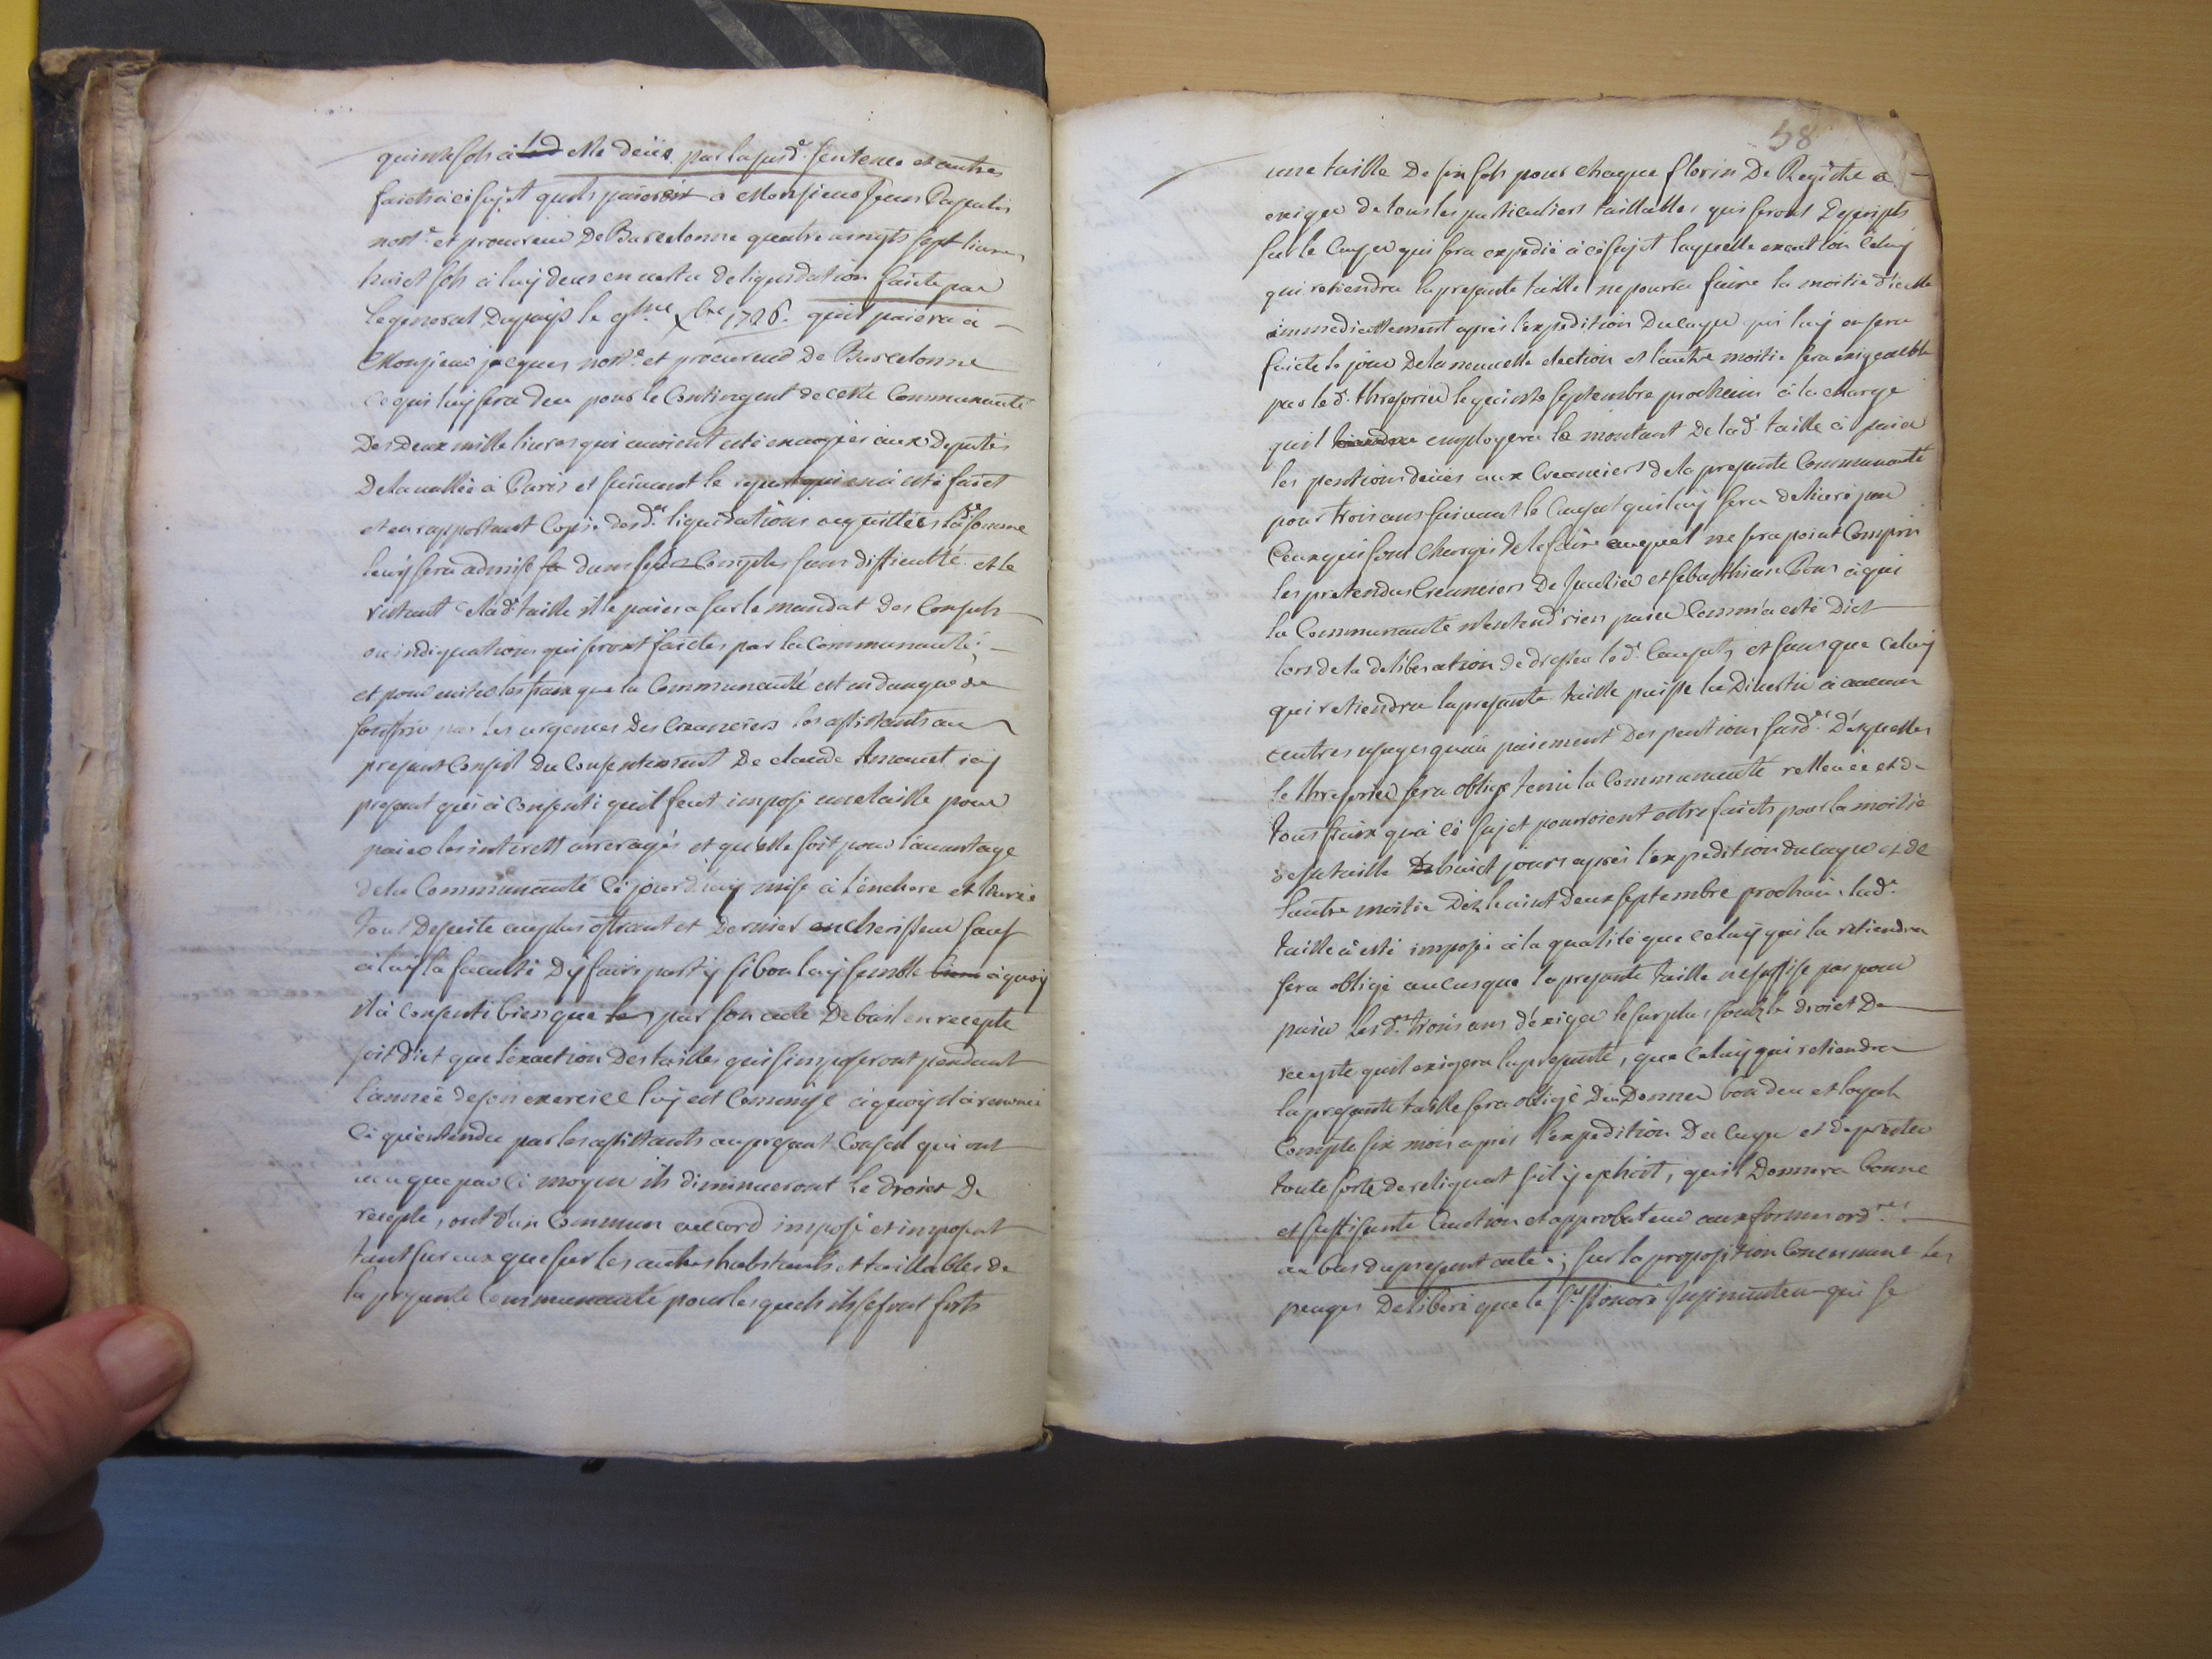 quinze sols à elle deües par la susd.e sentence et autres
faicts à cé sujet quils paieront à Monsieur Jean
nott.e et procureur De Barcelonne quatre vingts sept livres
huict sols à luy deus en vertu de liquidation faicte par
le general Du pays le 9me xbre 1726. quil paiera à
Monsieur jacques nott.e et procureur De Barcelonne
ce qui luy sera deu pour le Contingent de ceste Communauté
Des Deux mille livres qui avoient esté envoyées aux Deputés
De la vallée à Paris et suivant le qui en a esté faict
et en rapportant Copie des d.es liquidations acquittées la d.e somme
luy sera admise dans ses Comptes sans difficulté et le
restant de la d.e taille il le paiera sur le mandat Des Consuls
ou indiquations qui seront faictes par la Communauté;
et pour eviter les fraix que la Communauté est en danger de
souffrir par les urgences Des Creanciers les assistants au
present Conseil Du Consentement De claude Arnaud icy
present qui à Consenti quil feut imposé une taille pour
paier les interets arreragés et qu'elle soit pour l'avantage
de la Communauté cé jourd'huy mise à l'enchere et livrée
tout De suite au plus offrant et Dernier encherisseur sauf
à luy la faculté D'y faire party si bon luy semble à quoy
il à Consenti bien que par son acte De bail en recepte
soit dict que l'exaction Des tailles qui s'imposeront pendant
l'année de son exercice luy est Commise à quoy il à renoncé
cé qu'entendu par les assistants au present Conseil qui ont
veu que par cé moyen ils diminueront le droict De
recepte, ont d'un Commun accord imposé et imposent
tant sur eux que sur les autres habitants et taillables de
la presente Communauté pour lesquels ils se font forts
58
une taille De six sols pour chaque florin De Registre à
exiger de tous les particuliers taillables qui seront Descripts
sur le Cayer qui sera expedié à cé sujet laquelle exaction Celuy
qui retiendra la presente taille ne pourra faire la moitié d'icelle
immediattement après l'expedition Du cayer qui luy en sera
faicte le jour De la nouvelle election et l'autre moitié sera exigeable
par le d. thresorier le quinze septembre prochain à la charge
quil employera le montant De la d. taille à paier
les pentions deües aux Creanciers de la presente Communauté
pour trois ans suivant le Cayer qui luy sera delivré par
Ceux qui sont Chargés de le faire auquel ne sera point Compris
les pretendus Creanciers De et Sebasthian Pons à qui
la Communauté n'entend rien paier Comm'a esté Dict
lors de la deliberation de dresser le d. et sans que celuy
qui retiendra la presente taille puisse la Divertir à aucun
autres usages qu'au paiement Des pentions susd.es Desquelles
le thresorier sera obligé tenir la Communauté relleuée et de
tous fraix qu'à cé sujet pourroient estre faicts pour la moitié
de sa taille De huict jours après l'expedition du cayer et de
l'autre moitié Dez le vint Deux septembre prochain. la d.e
taille à esté imposée à la qualité que celuy qui la retiendra
sera obligé au cas que la presente taille ne suffise pas pour
paier les d.es trois ans d'exiger le surplus soubz le droict De
recepte quil exigera la presente, que Celuy qui retiendra
la presente taille sera obligé D'en Donner bon deu et loyal
Compte six mois après l'expedition Du cayer et de prester
toute sorte de reliquat sil y echoit, quil Donnera bonne
et suffisante Caution et approbateur aux formes ord.res
au bas du present acte; sur la proposition Concernant les
Deliberé que le S.r honoré qui se